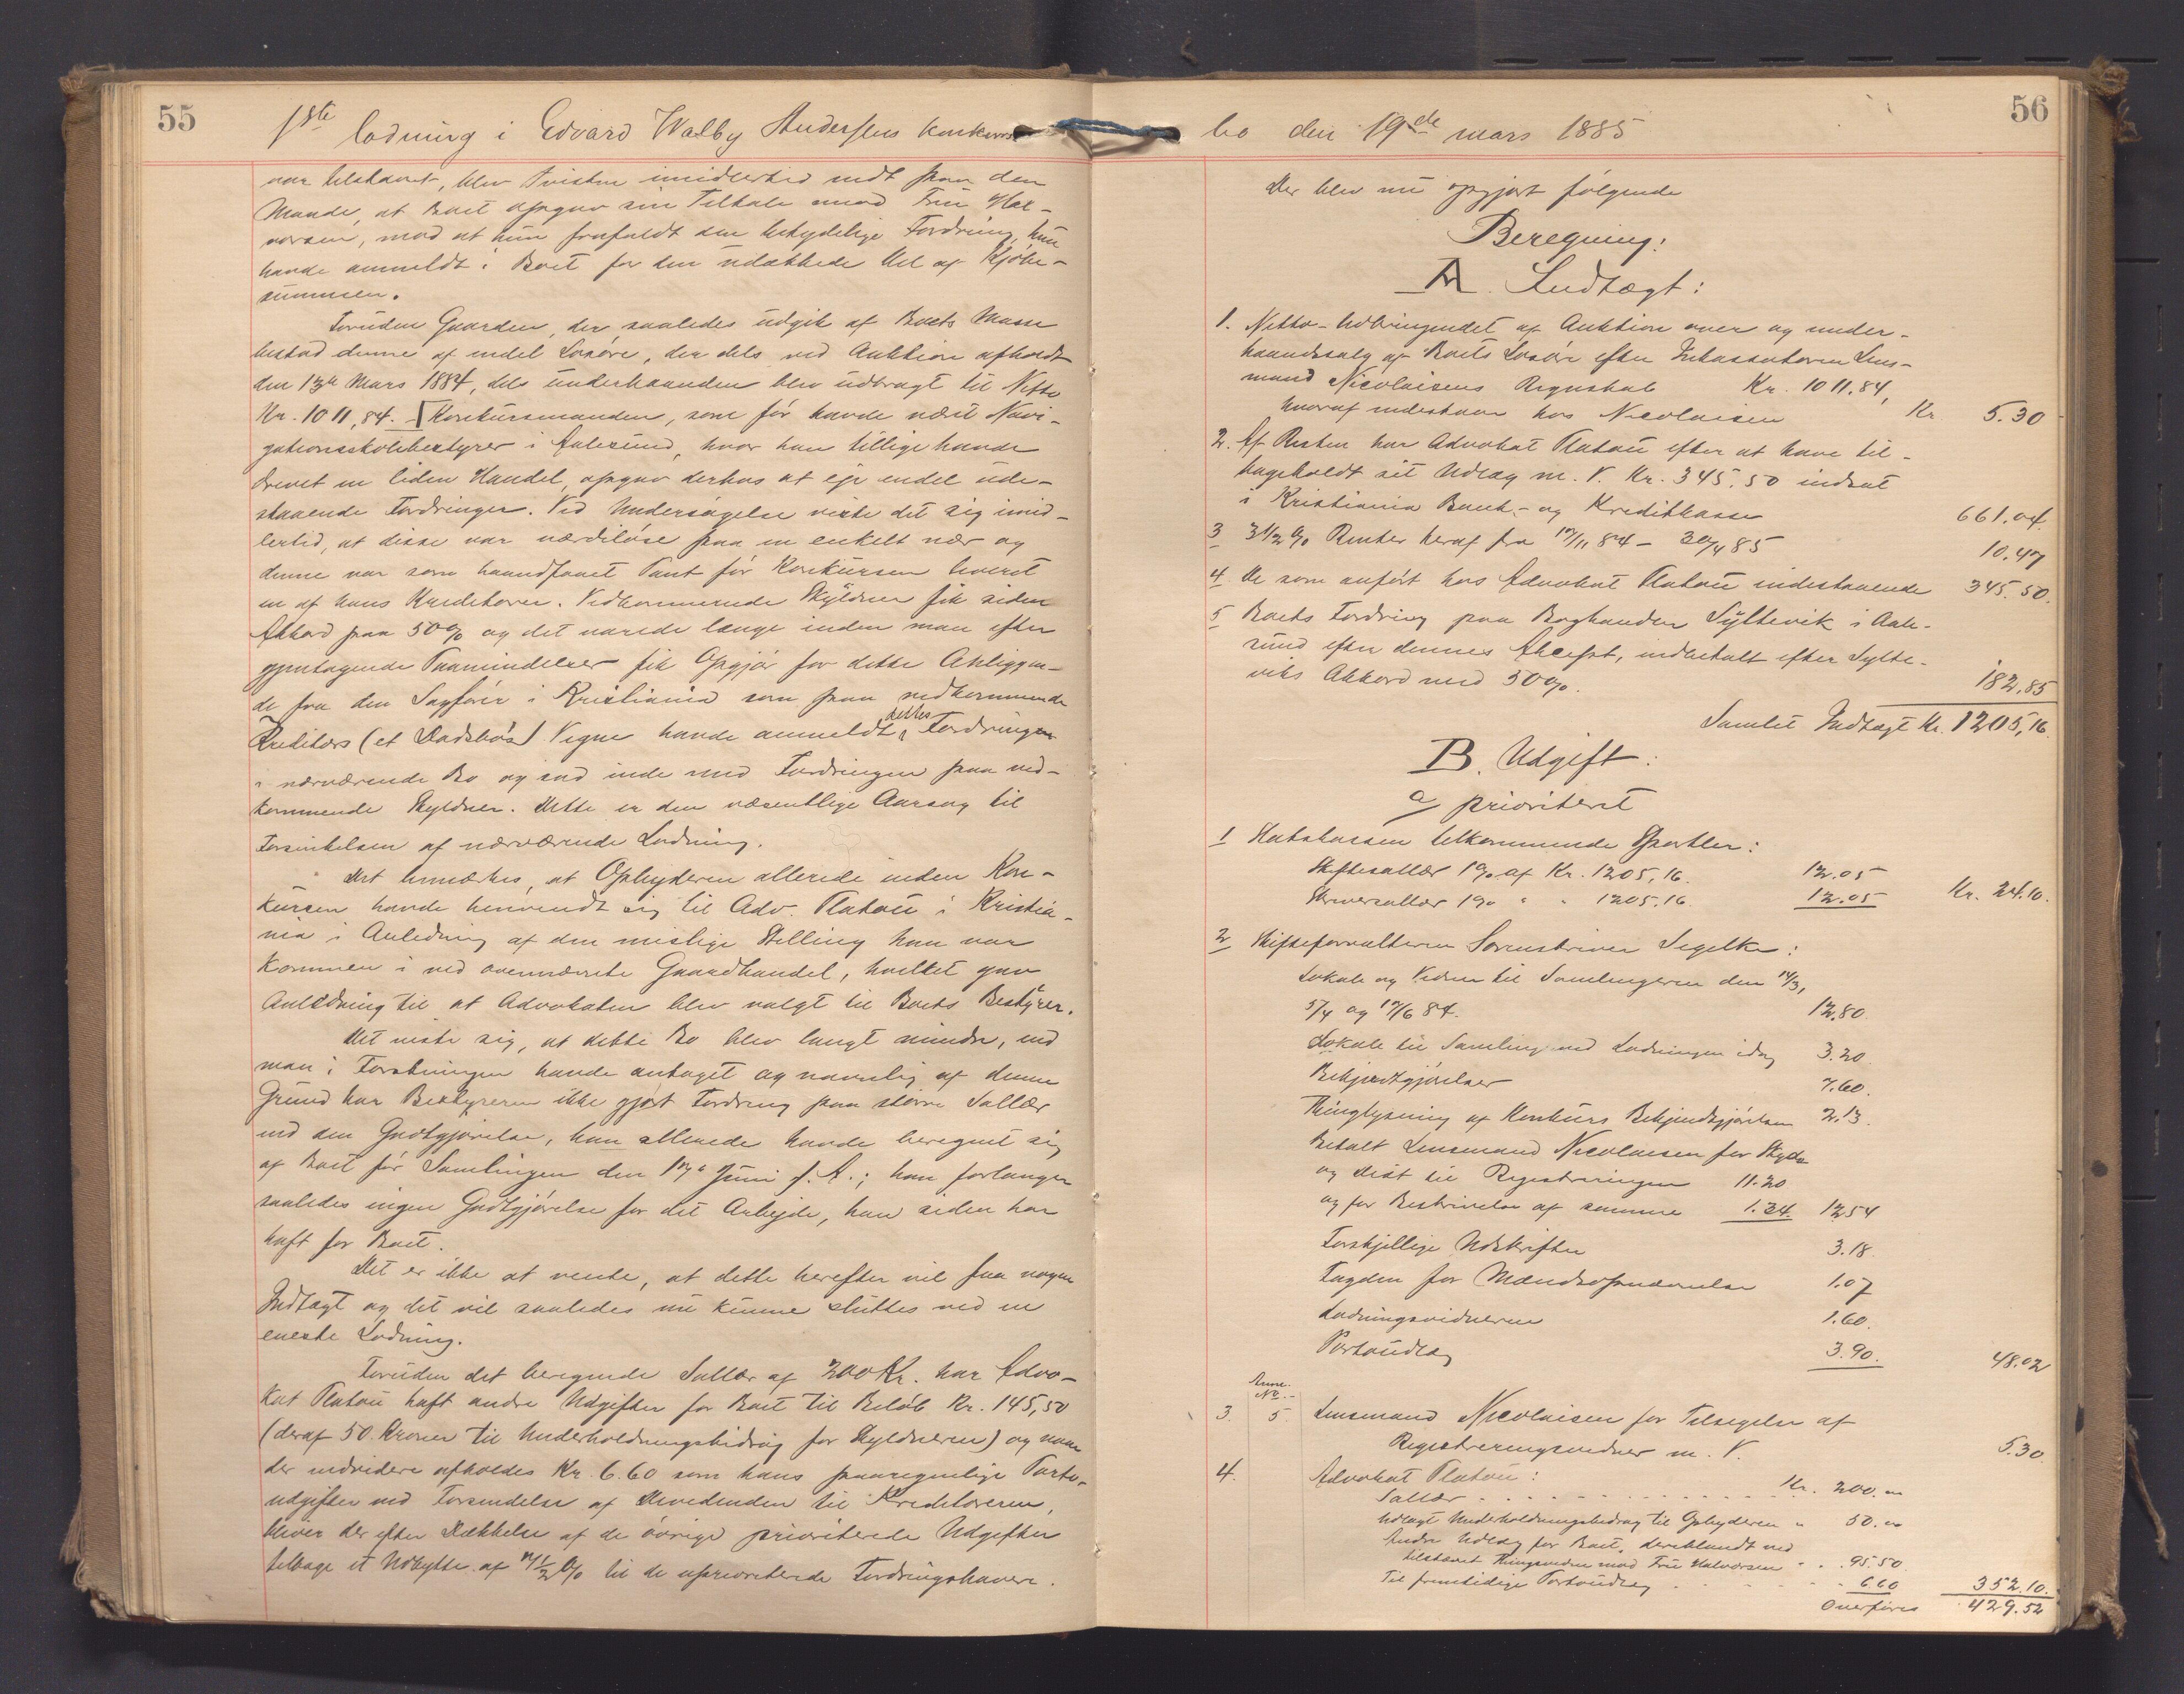 55
1ste lodning i Edvard Walby Andersens konkurs
var tilstævnt, blev Tvisten imidlertid endt paa den
Maade, at Boet opgav sin Tiltale mod Fru Hal-
vorsen, mod at hun frafaldt den betydelige Fordring, hun
havde anmeldt i Boet for den udækkede Del af Kjøbe-
summen.
Foruden Gaarden, der saaledes udgik af Boets Masse
bestod denne af endel Løsøre, der dels ved Auktion afholdt
den 13de Mars 1884, dels underhaanden blev udbragt til Netto
Kr. 1011,84. Konkursmanden, som før havde været Navi-
gationsskolebestyrer i Aalesund, hvor han tillige havde
drevet en liden Handel, opgav derhos at eje endel ude-
staaende Fordringer. Ved Undersøgelse viste det sig imid-
lertid, at disse var værdiløse paa en enkelt nær og
denne var som haandfaaet Pant før Konkursen leveret
en af hans Kreditorer. Vedkommende Skyldner fik siden
Akkord paa 50% og det varede længe inden man efter
gjentagende Paamindelser fik Opgjør for dette Anliggen-
de fra den Sagfører i Kristiania som paa vedkommende
Kreditors (et Dødsbos) Vegne havde anmeldt dettes Fordringer
i nærværende Bo og sad inde med Fordringen paa ved-
kommende Skyldner. Dette er den væsentlige Aarsag til
Forsinkelsen af nærværende Lodning.
Det bemærkes, at Opbyderen allerede inden Kon-
kursen havde henvendt sig til Adv. Platou i Kristia-
nia i Anledning af den mislige Stilling han var
kommen i ved ovennævnte Gaardhandel, hvilket gav
Anledning til at Advokaten blev valgt til Boets Bestyrer.
Det viste sig, at dette Bo blev langt mindre, end
man i Forstningen havde antaget og navnlig af denne
Grund har Bestyreren ikke gjort Fordring paa større Sallær
end den Godtgjørelse, han allerede havde beregnet sig
af Boet før Samlingen den 17de Juni f. A.; han forlanger
saaledes ingen Godtgjørelse for det Arbejde, han siden har
haft for Boet.
Det er ikke at vente, at dette herefter vil faa nogen
Indtægt og det vil saaledes nu kunne sluttes ved en
eneste Lodning.
Foruden det beregnede Sallær af 200 Kr. har Advo-
kat Platou haft andre Udgifter for Boet til Beløb Kr. 145,50
(deraf 50 Kroner til Underholdningsbidrag for Skyldneren) og naar
der endvidere afholdes Kr. 6.60 som hans paaregnelige Porto-
udgifter ved Forsendelse af Dividenden til Kreditorerne,
bliver der efter Dækkelse af de øvrige prioriterede Udgifter
tilbage et Udbytte af 7 1/2 % til de uprioriterede Fordringshavere.
56
bo den 19de mars 1885
Der blev nu opgjort følgende
Beregning:
A. Indtægt:
1. Netto-Udbringendet af Auktion over og under-
haandssalg af Boets Løsøre efter Inkassatoren Lens-
mand Nicolaisens Regnskab Kr. 1011.84,
hvoraf indestaar hos Nicolaisen Kr. 5.30
2. Af Resten har Advokat Platou efter at have til-
bageholdt sit Udlæg m. V. Kr. 345.50 indsat
i Kristiania Bank- og Kreditkasse 661.04.
3 3 1/2 % Renter heraf fra 17/11 84 - 30/4 85 10.47
4. De som anført hos Advokat Platou indestaaende 345.50.
5 Boets Fordring paa Boghandler Syltevik i Aale-
sund efter dennes Akcept, indbetalt efter Sylte-
viks Akkord med 50%. 182,85
Samlet Indtægt Kr. 1205,16.
B. Udgift:
a/ prioriteret
1 Statskassen tilkommende Sportler:
Skiftesallær 1% af Kr. 1205,16. 12.05
Skriversallær 1% " " 1205.16. 12.05 Kr. 24.10.
2 Skifteforvalteren Sorenskriver Segelke:
Lokale og Vidner til Samlingerne den 14/3,
5/4 og 17/6 84. 12.80.
Lokale til Samling ved Lodningen idag 3.20.
Bekjendtgjørelser 7.60.
Thinglysning af Konkurs Bekjendtgjørelsen 2.13.
Betalt Lensmand Nicolaisen for Skyds
og Diæt til Registreringen 11.20
og for Beskrivelse af samme 1.34. 12.54
Forskjellige Udskrifter 3.18.
Tagden for Mændsopnævnelse 1.07
Lodningsvidnerne 1.60.
Portoudlæg 3.90. 48.02
Anm. No.-
3. 5. Lensmand Nicolaisen for Tilsigelse af
Registreringsvidner m. V. 5.30.
4. Advokat Platou:
Sallær Kr. 200.00
Udlagt Underholdningsbidrag til Opbyderen " 50.00
Andre Udlæg for Boet, deriblandt ved
tilstævnt Thingsvidne mod Fru Halvorsen " 95.50
Til fremtidige Portoudlæg " 6.60 352.10.
Overføres 429.52